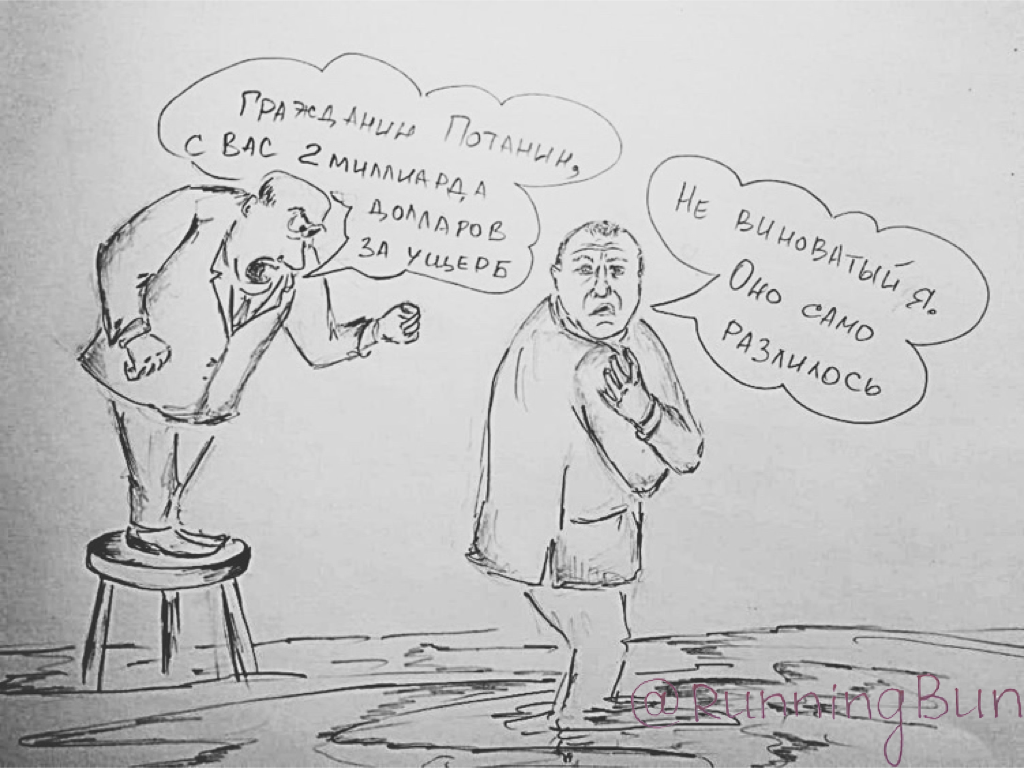 Гражданин Потанин,
с вас 2 миллиарда
долларов
за ущерб
Не виноватый я.
Оно само
разлилось
@RunningBun